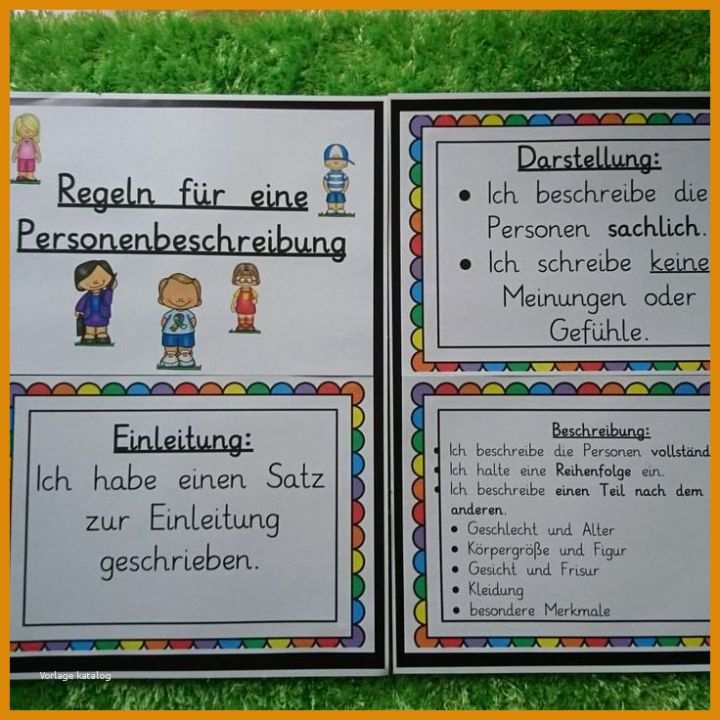 Regeln für eine
Personenbeschreibung
Darstellung:
• Ich beschreibe die
Personen sachlich.
• Ich schreibe keine
Meinungen oder
Gefühle.
Einleitung:
Ich habe einen Satz
zur Einleitung
geschrieben.
Beschreibung:
• Ich beschreibe die Personen vollständ
• Ich halte eine Reihenfolge ein.
• Ich beschreibe einen Teil nach dem
anderen.
• Geschlecht und Alter
• Körpergröße und Figur
• Gesicht und Frisur
• Kleidung
• besondere Merkmale
Vorlage katalog